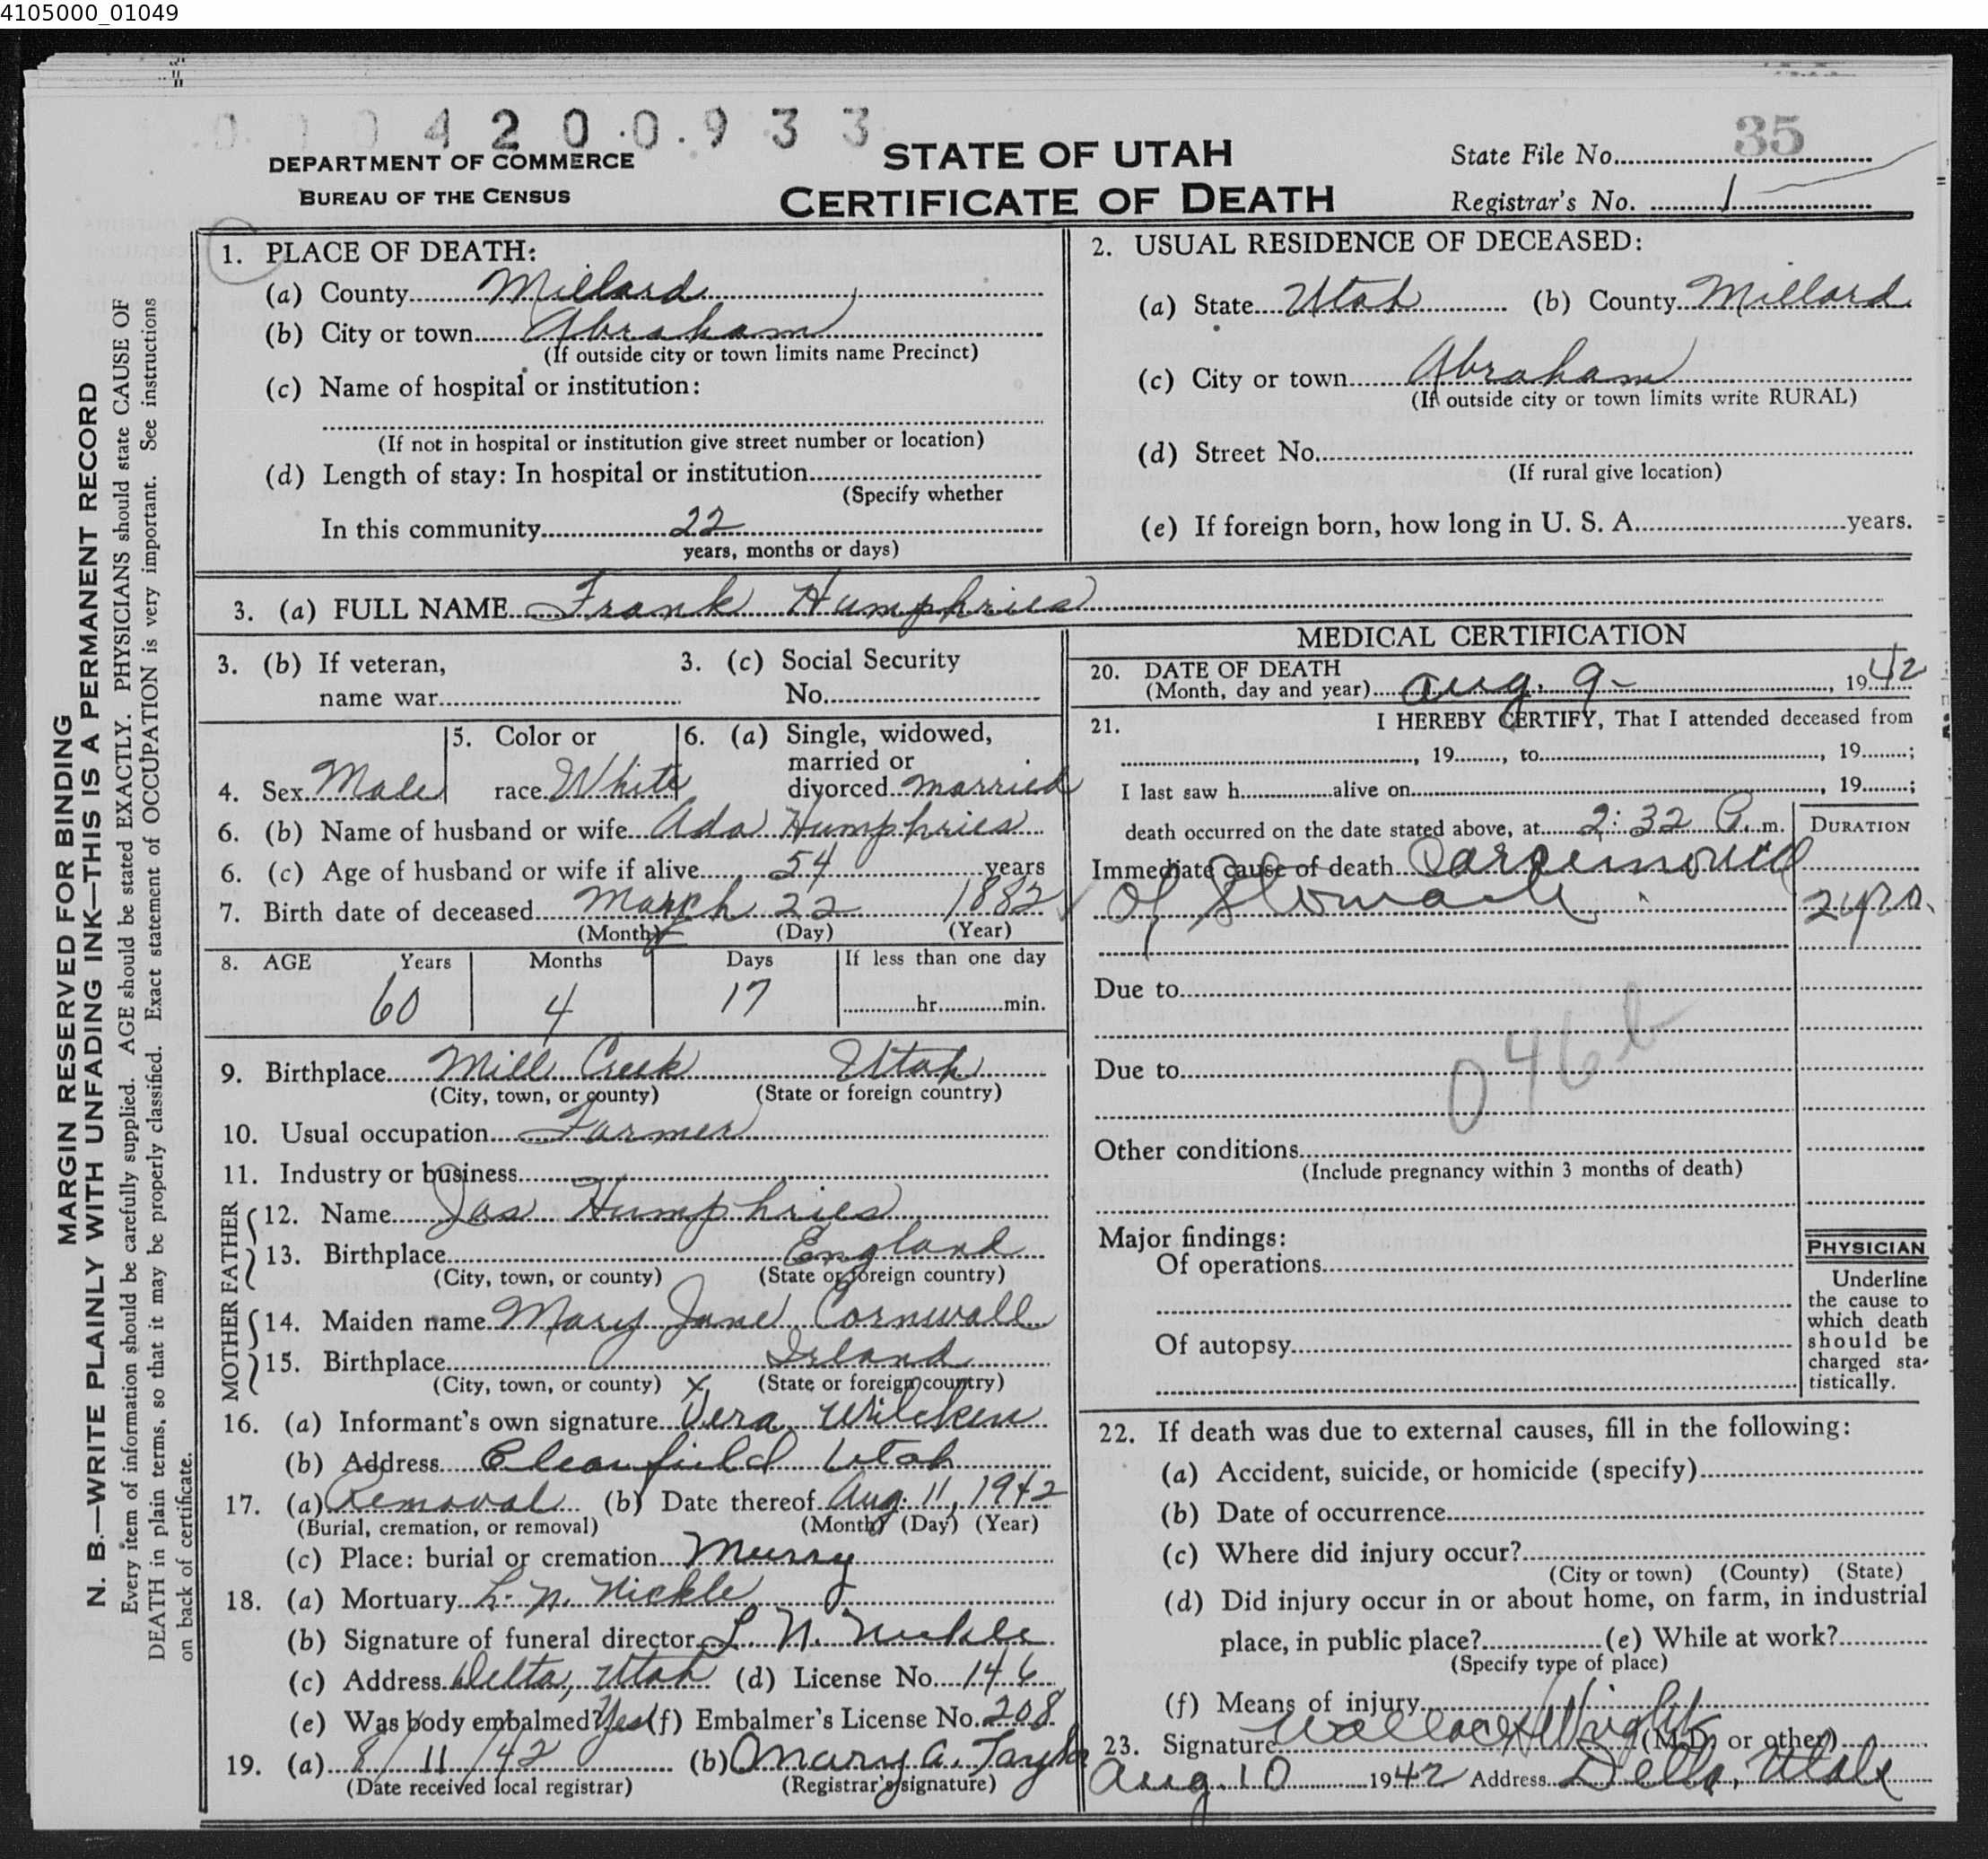 4105000_01049
0 1 0 4 2 0 0 9 3 3
DEPARTMENT OF COMMERCE
BUREAU OF THE CENSUS
STATE OF UTAH
CERTIFICATE OF DEATH
State File No. 35
Registrar's No. 1
MARGIN RESERVED FOR BINDING
N. B.—WRITE PLAINLY WITH UNFADING INK—THIS IS A PERMANENT RECORD
Every item of information should be carefully supplied. AGE should be stated EXACTLY. PHYSICIANS should state CAUSE OF
DEATH in plain terms, so that it may be properly classified. Exact statement of OCCUPATION is very important. See instructions
on back of certificate.
1. PLACE OF DEATH:
(a) County Millard
(b) City or town Abraham
(If outside city or town limits name Precinct)
(c) Name of hospital or institution:
(If not in hospital or institution give street number or location)
(d) Length of stay: In hospital or institution
(Specify whether
In this community 22
years, months or days)
2. USUAL RESIDENCE OF DECEASED:
(a) State Utah (b) County Millard
(c) City or town Abraham
(If outside city or town limits write RURAL)
(d) Street No.
(If rural give location)
(e) If foreign born, how long in U. S. A. years.
3. (a) FULL NAME Frank Humphries
3. (b) If veteran,
name war
3. (c) Social Security
No.
4. Sex Male
5. Color or
race White
6. (a) Single, widowed,
married or
divorced married
6. (b) Name of husband or wife Ada Humphries
6. (c) Age of husband or wife if alive 54 years
7. Birth date of deceased March 22 1882
(Month) (Day) (Year)
8. AGE Years Months Days If less than one day
60 4 17 hr. min.
9. Birthplace Mill Creek Utah
(City, town, or county) (State or foreign country)
10. Usual occupation Farmer
11. Industry or business
FATHER
12. Name Jas Humphries
13. Birthplace England
(City, town, or county) (State or foreign country)
MOTHER
14. Maiden name Mary Jane Cornwall
15. Birthplace Irland
(City, town, or county) X (State or foreign country)
16. (a) Informant's own signature Vera Wilcken
(b) Address Clearfield Utah
17. (a) Removal (b) Date thereof Aug. 11, 1942
(Burial, cremation, or removal) (Month) (Day) (Year)
(c) Place: burial or cremation Murry
18. (a) Mortuary L. N. Nickle
(b) Signature of funeral director L. N. Nickle
(c) Address Delta, Utah (d) License No. 146
(e) Was body embalmed? Yes (f) Embalmer's License No. 208
19. (a) 8/11/42 (b) Mary A. Taylor
(Date received local registrar) (Registrar's signature)
MEDICAL CERTIFICATION
20. DATE OF DEATH
(Month, day and year) Aug. 9- , 1942
21. I HEREBY CERTIFY, That I attended deceased from
, 19 , to , 19 ;
I last saw h alive on , 19 ;
death occurred on the date stated above, at 2:32 P. m.
DURATION
Immediate cause of death Carcinoma
of Stomach 2 yrs.
Due to
046b
Due to
Other conditions
(Include pregnancy within 3 months of death)
Major findings:
Of operations
Of autopsy
PHYSICIAN
Underline
the cause to
which death
should be
charged sta-
tistically.
22. If death was due to external causes, fill in the following:
(a) Accident, suicide, or homicide (specify)
(b) Date of occurrence
(c) Where did injury occur?
(City or town) (County) (State)
(d) Did injury occur in or about home, on farm, in industrial
place, in public place? (e) While at work?
(Specify type of place)
(f) Means of injury
23. Signature Wallace Wright (M.D. or other)
Aug. 10 1942 Address Delta, Utah